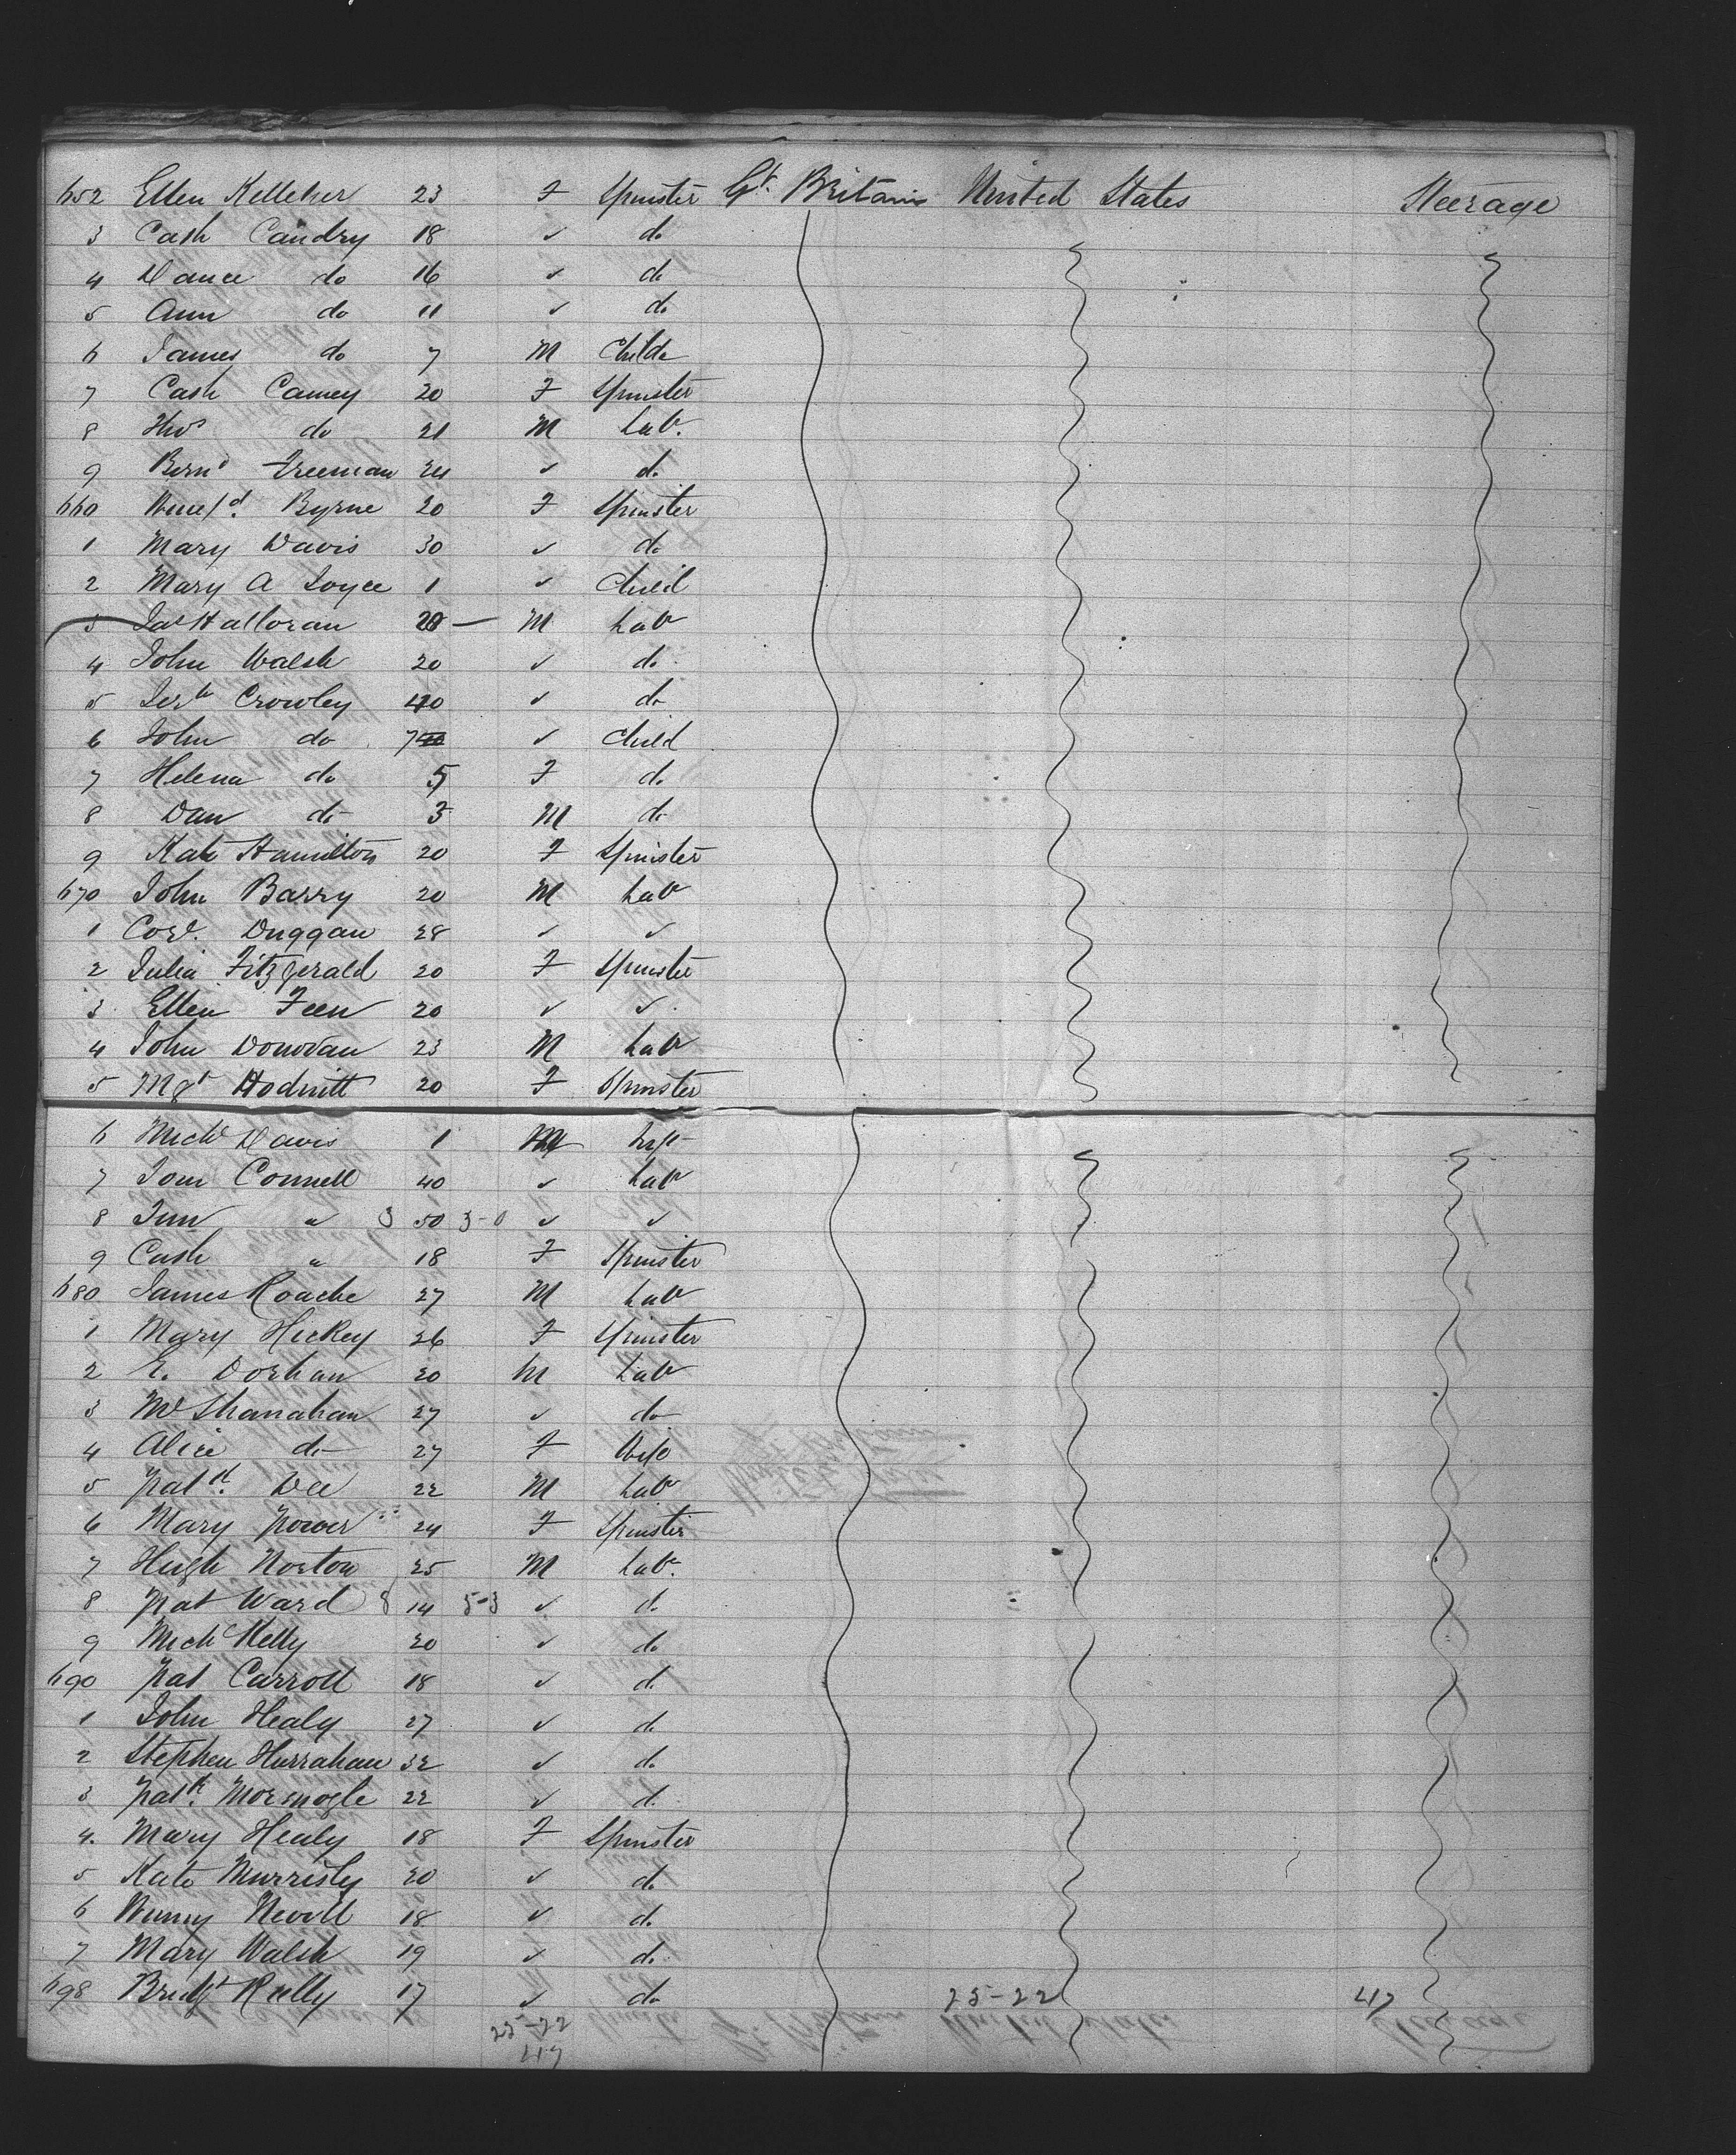 652 Ellen Kelleher 23 F Spinster Gt. Britain United States Steerage
3 Cath Candry 18 ✓ do
4 do 16 ✓ do
5 Ann do 11 ✓ do
6 James do 7 M Child
7 Cath Camey 20 F Spinster
8 Thos do 21 M Lab.
9 Bernd Freeman 24 ✓ do
660 Byrne 20 F Spinster
1 Mary Davis 30 ✓ do
2 Mary A Joyce 1 ✓ Child
3 Jas Halloran 20 — M Lab
4 John Walsh 20 ✓ do
5 Jerh Crowley 40 ✓ do
6 John do 7 ✓ Child
7 Helena do 5 F do
8 Dan do 3 M do
9 Kate Hamilton 20 F Spinster
670 John Barry 20 M Lab
1 Duggan 28 ✓ ✓
2 Julia Fitzgerald 20 F Spinster
3 Ellen Feen 20 ✓ ✓
4 John Donovan 23 M Lab
5 Mgt Hodnitt 20 F Spinster
6 Michl Davis 1 M
7 Tom Connell 40 ✓ Lab
8 " 3 50 3-0 ✓ ✓
9 Cath " 18 F Spinster
680 James Roache 27 M Lab
1 Mary Hickey 26 F Spinster
2 E. Dorhan 20 M Lab
3 Shanahan 27 ✓ do
4 Alice do 27 F Wife
5 Dee 22 M Lab
6 Mary Power 24 F Spinster
7 Hugh Norton 25 M Lab.
8 Pat Ward 8 14 5-3 ✓ do
9 Mich Kelly 20 ✓ do
690 Pat Carroll 18 ✓ do
1 John Healy 27 ✓ do
2 Stephen Hurrahan 32 ✓ do
3 Patk. 22 ✓ do
4. Mary Healy 18 F Spinster
5 Kate Murrisly 20 ✓ do
6 Nevill 18 ✓ do
7 Mary Walsh 19 ✓ do
698 Bridgt Reilly 17 ✓ do 25-22 47
25-22
47